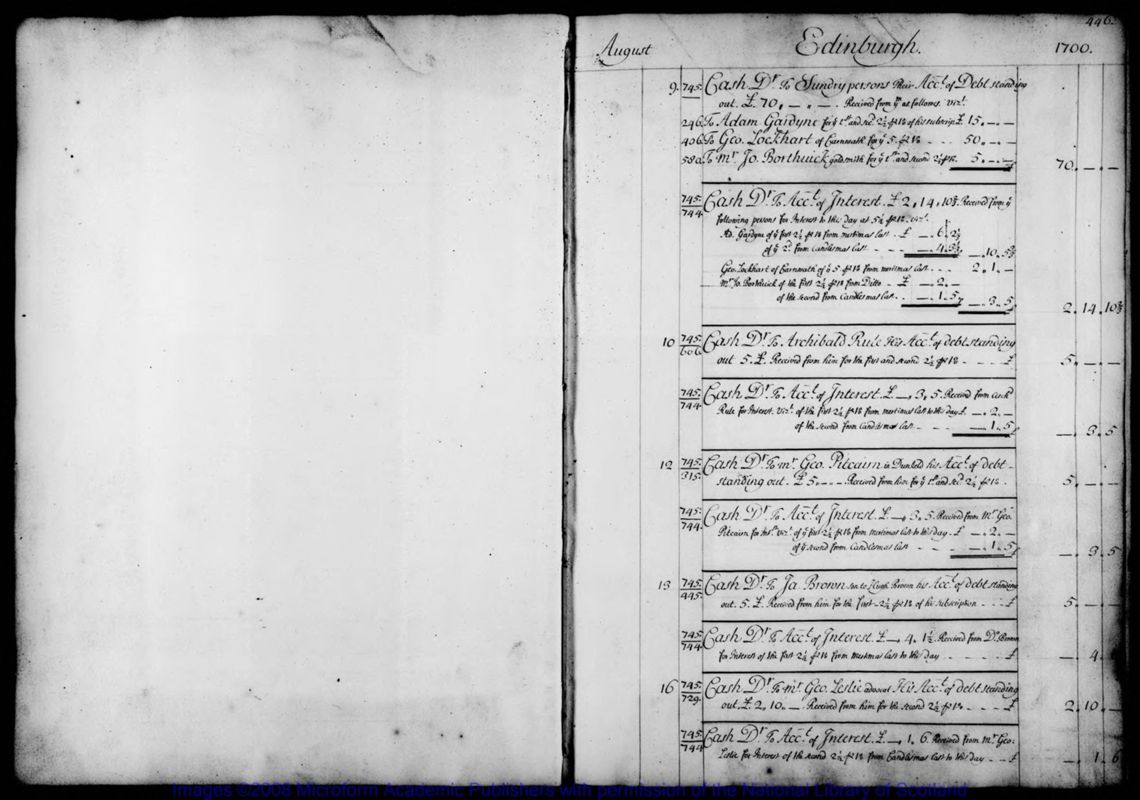 446.
August Edinburgh. 1700.
9. 745. Cash Dr. To Sundry persons Their Acct. of Debt standing
out. £. 70, — „ —. Received from ym as follows. Vizt.
246 To Adam Gardyne for ye 1st and sec. 2½ pr Ct of his subscrip. £ 15. — . —
406 To Geo. Lockhart of Carnwath for ye 5. pr Ct - - - 50. — . —
580 To Mr. Jo. Borthwick goldsmith for ye 1st and second 2½ pr Ct. 5. — . —
70. — . —
745. 744. Cash Dr. To Acct. of Interest. £ 2, 14, 10¾. Received from ye
following persons for Interest to this day at 5½ pr Ct. vizt.
Ad. Gardyne of ye first 2½ pr Ct from mertimas last - £ — . 6. 2¼
of ye 2d. from Candlemas last - - - — . 4. 3¼ — . 10. 5½
Geo. Lockhart of Carnwath of ye 5 pr Ct from mertimas last - - - 2. 1. —
Mr. Jo. Borthwick of the first 2½ pr Ct from Ditto - £ — . 2. —
of the second from Candlemas last - - — . 1. 5 — . 3. 5
2. 14. 10¾
10 745. 606. Cash Dr. To Archibald Rule His Acct. of debt standing
out 5. £. Received from him for the first and second 2½ pr Ct - - - £ 5. — . —
745. 744. Cash Dr. To Acct. of Interest. £ —, 3, 5. Received from Arch
Rule for Interest. Vizt. of the first 2½ pr Ct from mertimas last to this day £. — . 2. —
of the second from Candlemas last - - — . 1. 5
— . 3. 5
12 745. 315. Cash Dr. To mr. Geo. Pitcairn in Dunkeld his Acct. of debt -
standing out. £ 5. - - - - Received from him for ye 1st and sec. 2½ pr Ct. 5. — . —
745. 744. Cash Dr. To Acct. of Interest. £. —, 3. 5. Received from Mr. Geo.
Pitcairn for Int. Vizt. of ye first 2½ pr Ct from mertimas last to this day. £ — . 2. —
of ye second from Candlemas last - - - — . 1. 5
— . 3. 5
13 745. 445. Cash Dr. To Ja. Brown son to Hugh Brown his Acct. of debt standing
out. 5. £. Received from him for the first - 2½ pr Ct of his subscription - - - £ 5. — . —
745. 744. Cash Dr. To Acct. of Interest. £ —, 4, 1½. Received from Do. Brown
for Interest of the first 2½ pr Ct from mertimas last to this day - - - £ — . 4.
16 745. 729. Cash Dr. To mr. Geo. Leslie advocat His Acct. of debt standing
out. £. 2, 10. —. Received from him for the second 2½ pr Ct - - - £ 2. 10. —
745. 744 Cash Dr. To Acct. of Interest. £ —, 1, 6. Received from Mr. Geo:
Leslie for Interest of the second 2½ pr Ct from Candlemas last to this day - - £ — . 1. 6
Images ©2008 Microform Academic Publishers with permission of the National Library of Scotland